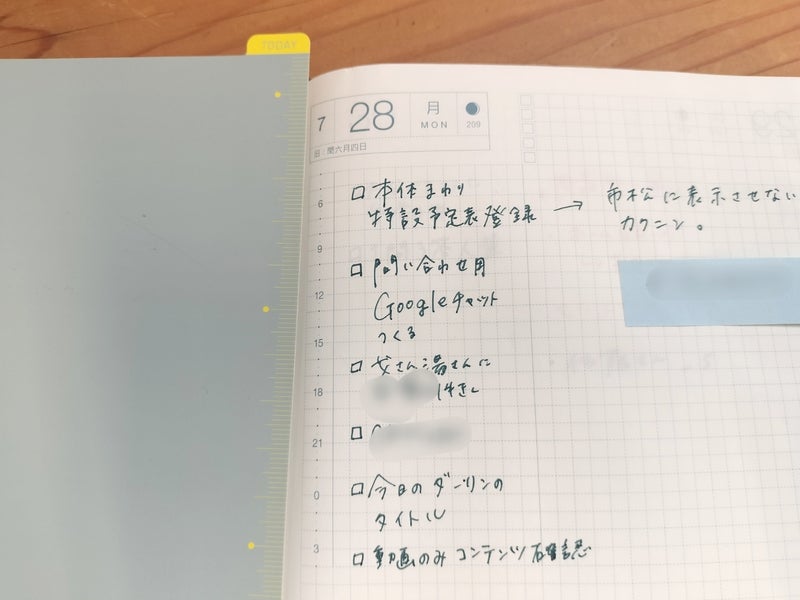 TODAY
7 28 月 MON 209
旧 閏六月四日
6
9
12
15
18
21
0
3
□ 本体まわり
特設予定表登録 → 市松に表示させない
カクニン。
□ 問い合わせ用
Googleチャット
つくる
□ 父さん湯さんに
□
□ 今日のダーリンの
タイトル
□ 動画のみコンテンツ確認